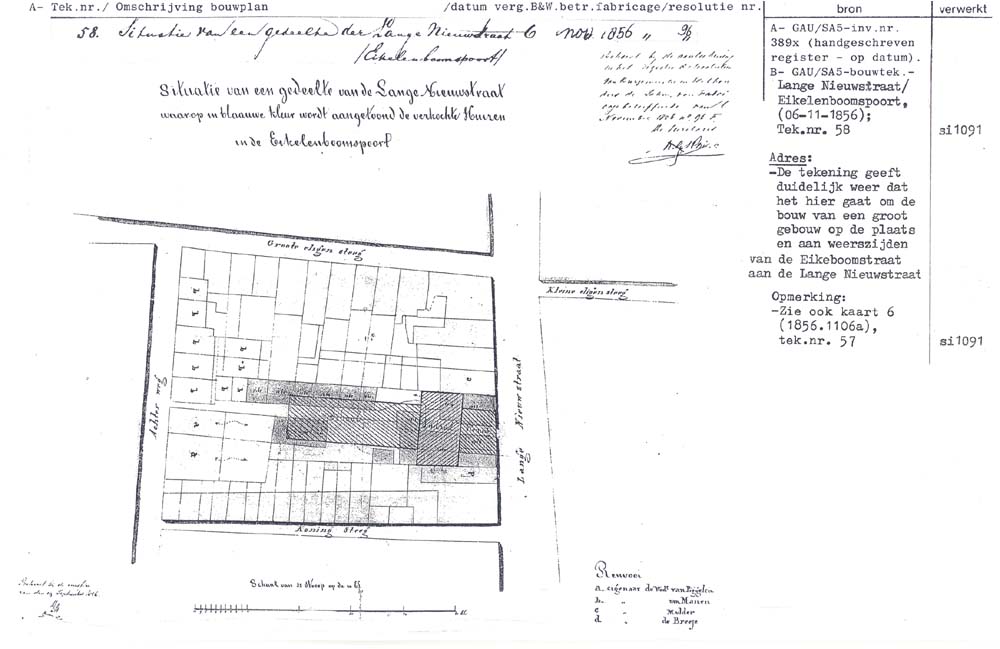 A- Tek.nr./ Omschrijving bouwplan /datum verg.B&W.betr.fabricage/resolutie nr. bron verwerkt
58. Situatie van een gedeelte der Lange Nieuwstraat 6 Nov. 1856 „
(Eikelenboomspoort)
Situatie van een gedeelte van de Lange Nieuwstraat
waarop in blaauwe kleur wordt aangetoond de verkochte Huizen
in de Eikelenboomspoort
A- GAU/SA5-inv.nr.
389x (handgeschreven
register - op datum).
B- GAU/SA5-bouwtek.-
Lange Nieuwstraat/
Eikelenboomspoort,
(06-11-1856);
Tek.nr. 58 si1091
Adres:
-De tekening geeft
duidelijk weer dat
het hier gaat om de
bouw van een groot
gebouw op de plaats
en aan weerszijden
van de Eikeboomstraat
aan de Lange Nieuwstraat
Opmerking:
-Zie ook kaart 6
(1856.1106a),
tek.nr. 57 si1091
Groote eligen steeg
Kleine eligen steeg
Achter weg
Lange Nieuwstraat
Koning Steeg
Schaal van
Renvooi
a eigenaar de Wed. van
b „ van Manen
c „ Mulder
d „ de Breeje